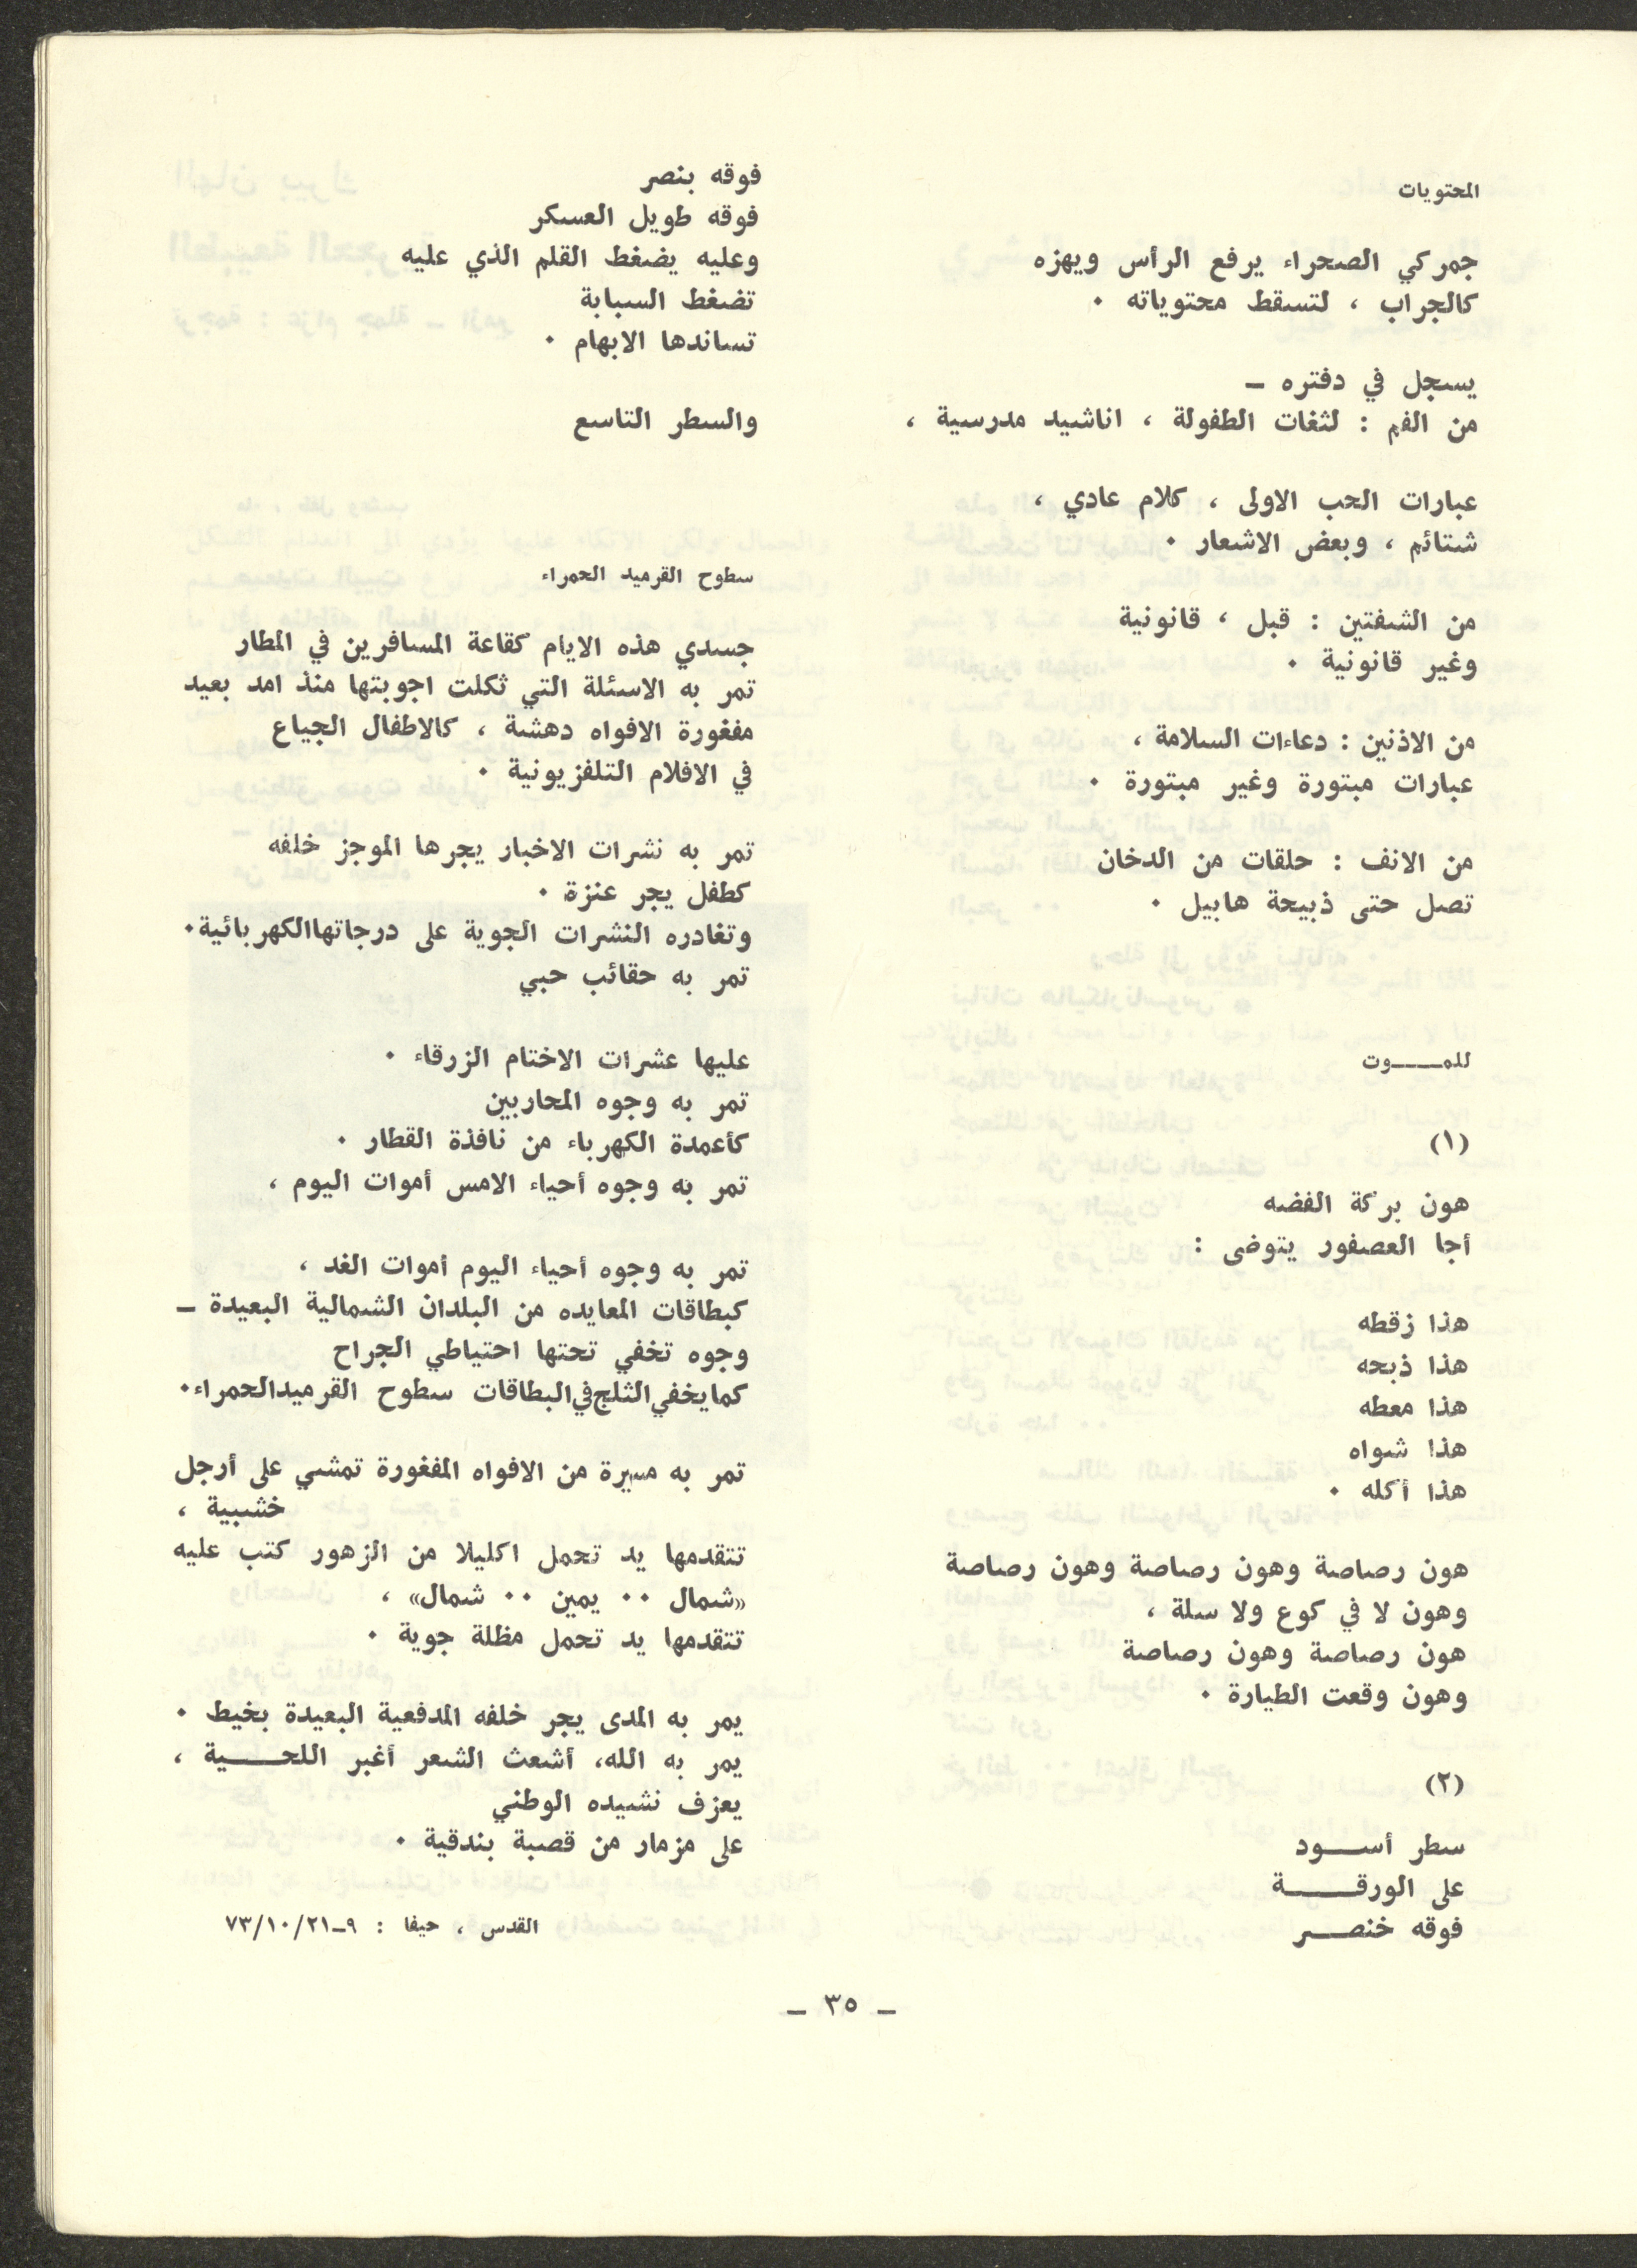 المحتويات
جمركي الصحراء يرفع الرأس ويهزه
كالجراب ، لتسقط محتوياته ٠
يسجل في دفتره ـ
من الفم : لثغات الطفولة ، اناشيد مدرسية ،
عبارات الحب الاولى ، كلام عادي ،
شتائم ، وبعض الاشعار ٠
من الشفتين : قبل ، قانونية
وغير قانونية ٠
من الاذنين : دعاءات السلامة ،
عبارات مبتورة وغير مبتورة ٠
من الانف : حلقات من الدخان
تصل حتى ذبيحة هابيل ٠
للمـــــوت
(١)
هون بركة الفضه
أجا العصفور يتوضى :
هذا زقطه
هذا ذبحه
هذا معطه
هذا شواه
هذا أكله ٠
هون رصاصة وهون رصاصة وهون رصاصة
وهون لا في كوع ولا سلة ،
هون رصاصة وهون رصاصة
وهون وقعت الطيارة ٠
(٢)
سطر أســــود
على الورقـــــــة
فوقه خنصـــــر
فوقه بنصر
فوقه طويل العسكر
وعليه يضغط القلم الذي عليه
تضغط السبابة
تساندها الابهام ٠
والسطر التاسع
سطوح القرميد الحمراء
جسدي هذه الايام كقاعة المسافرين في المطار
تمر به الاسئلة التي ثكلت اجوبتها منذ امد بعيد
مفغورة الافواه دهشة ، كالاطفال الجياع
في الافلام التلفزيونية ٠
تمر به نشرات الاخبار يجرها الموجز خلفه
كطفل يجر عنزة ٠
وتغادره النشرات الجوية على درجاتهاالكهربائية٠
تمر به حقائب حبي
عليها عشرات الاختام الزرقاء ٠
تمر به وجوه المحاربين
كأعمدة الكهرباء من نافذة القطار ٠
تمر به وجوه أحياء الامس أموات اليوم ،
تمر به وجوه أحياء اليوم أموات الغد ،
كبطاقات المعايده من البلدان الشمالية البعيدة ـ
وجوه تخفي تحتها احتياطي الجراح
كمايخفي الثلج في البطاقات سطوح القرميدالحمراء٠
تمر به مسيرة من الافواه المفغورة تمشي على أرجل
خشبية ،
تتقدمها يد تحمل اكليلا من الزهور كتب عليه
«شمال ٠٠ يمين ٠٠ شمال» ،
تتقدمها يد تحمل مظلة جوية ٠
يمر به المدى يجر خلفه المدفعية البعيدة بخيط ٠
يمر به الله، أشعث الشعر أغبر اللحـــــية ،
يعزف نشيده الوطني
على مزمار من قصبة بندقية ٠
القدس ، حيفا : ٩ـ٧٣/١٠/٢١
ـ ٣٥ ـ